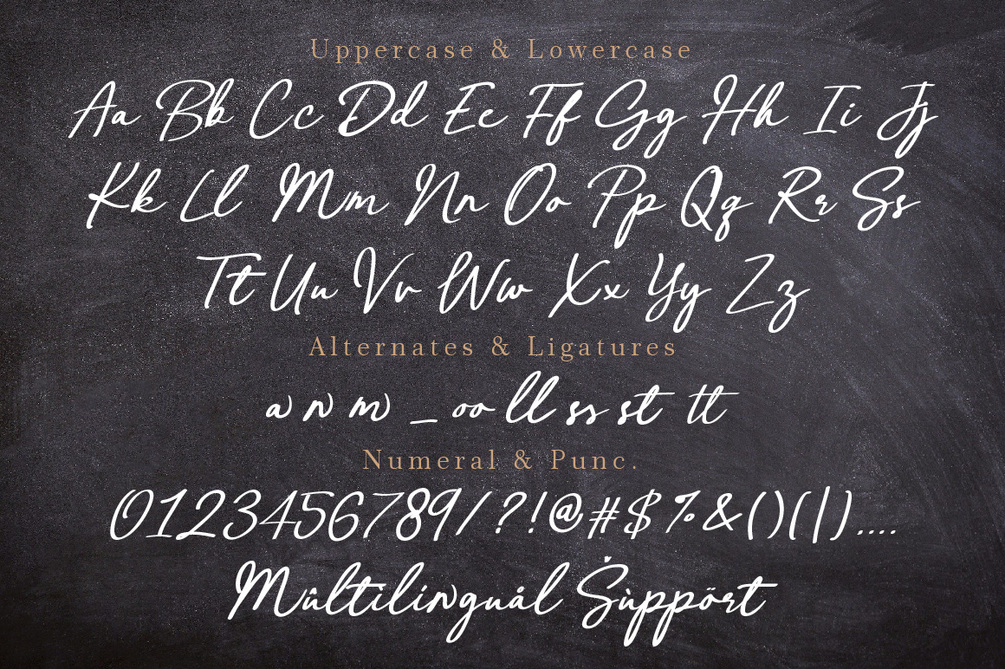 Uppercase & Lowercase
Aa Bb Cc Dd Ee Ff Gg Hh Ii Jj
Kk Ll Mm Nn Oo Pp Qq Rr Ss
Tt Uu Vv Ww Xx Yy Zz
Alternates & Ligatures
a n m _ oo ll ss st tt
Numeral & Punc.
0123456789/?!@#$%&()(|)....
Mûltilinguál Ṡùppört